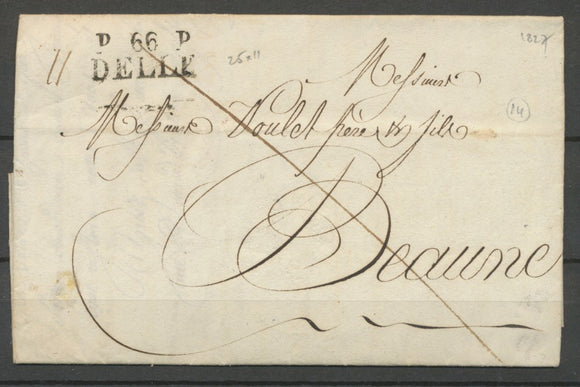 P 66 P
DELLE
25x11
1827
Messieurs
Messieurs Voulet frère & fils
14
Beaune